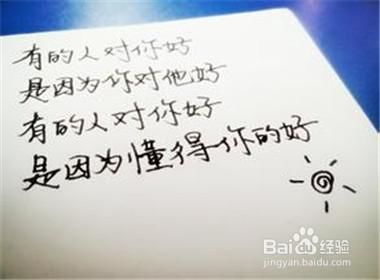 有的人对你好
是因为你对他好
有的人对你好
是因为懂得你的好
Baidu经验
jingyan.baidu.com